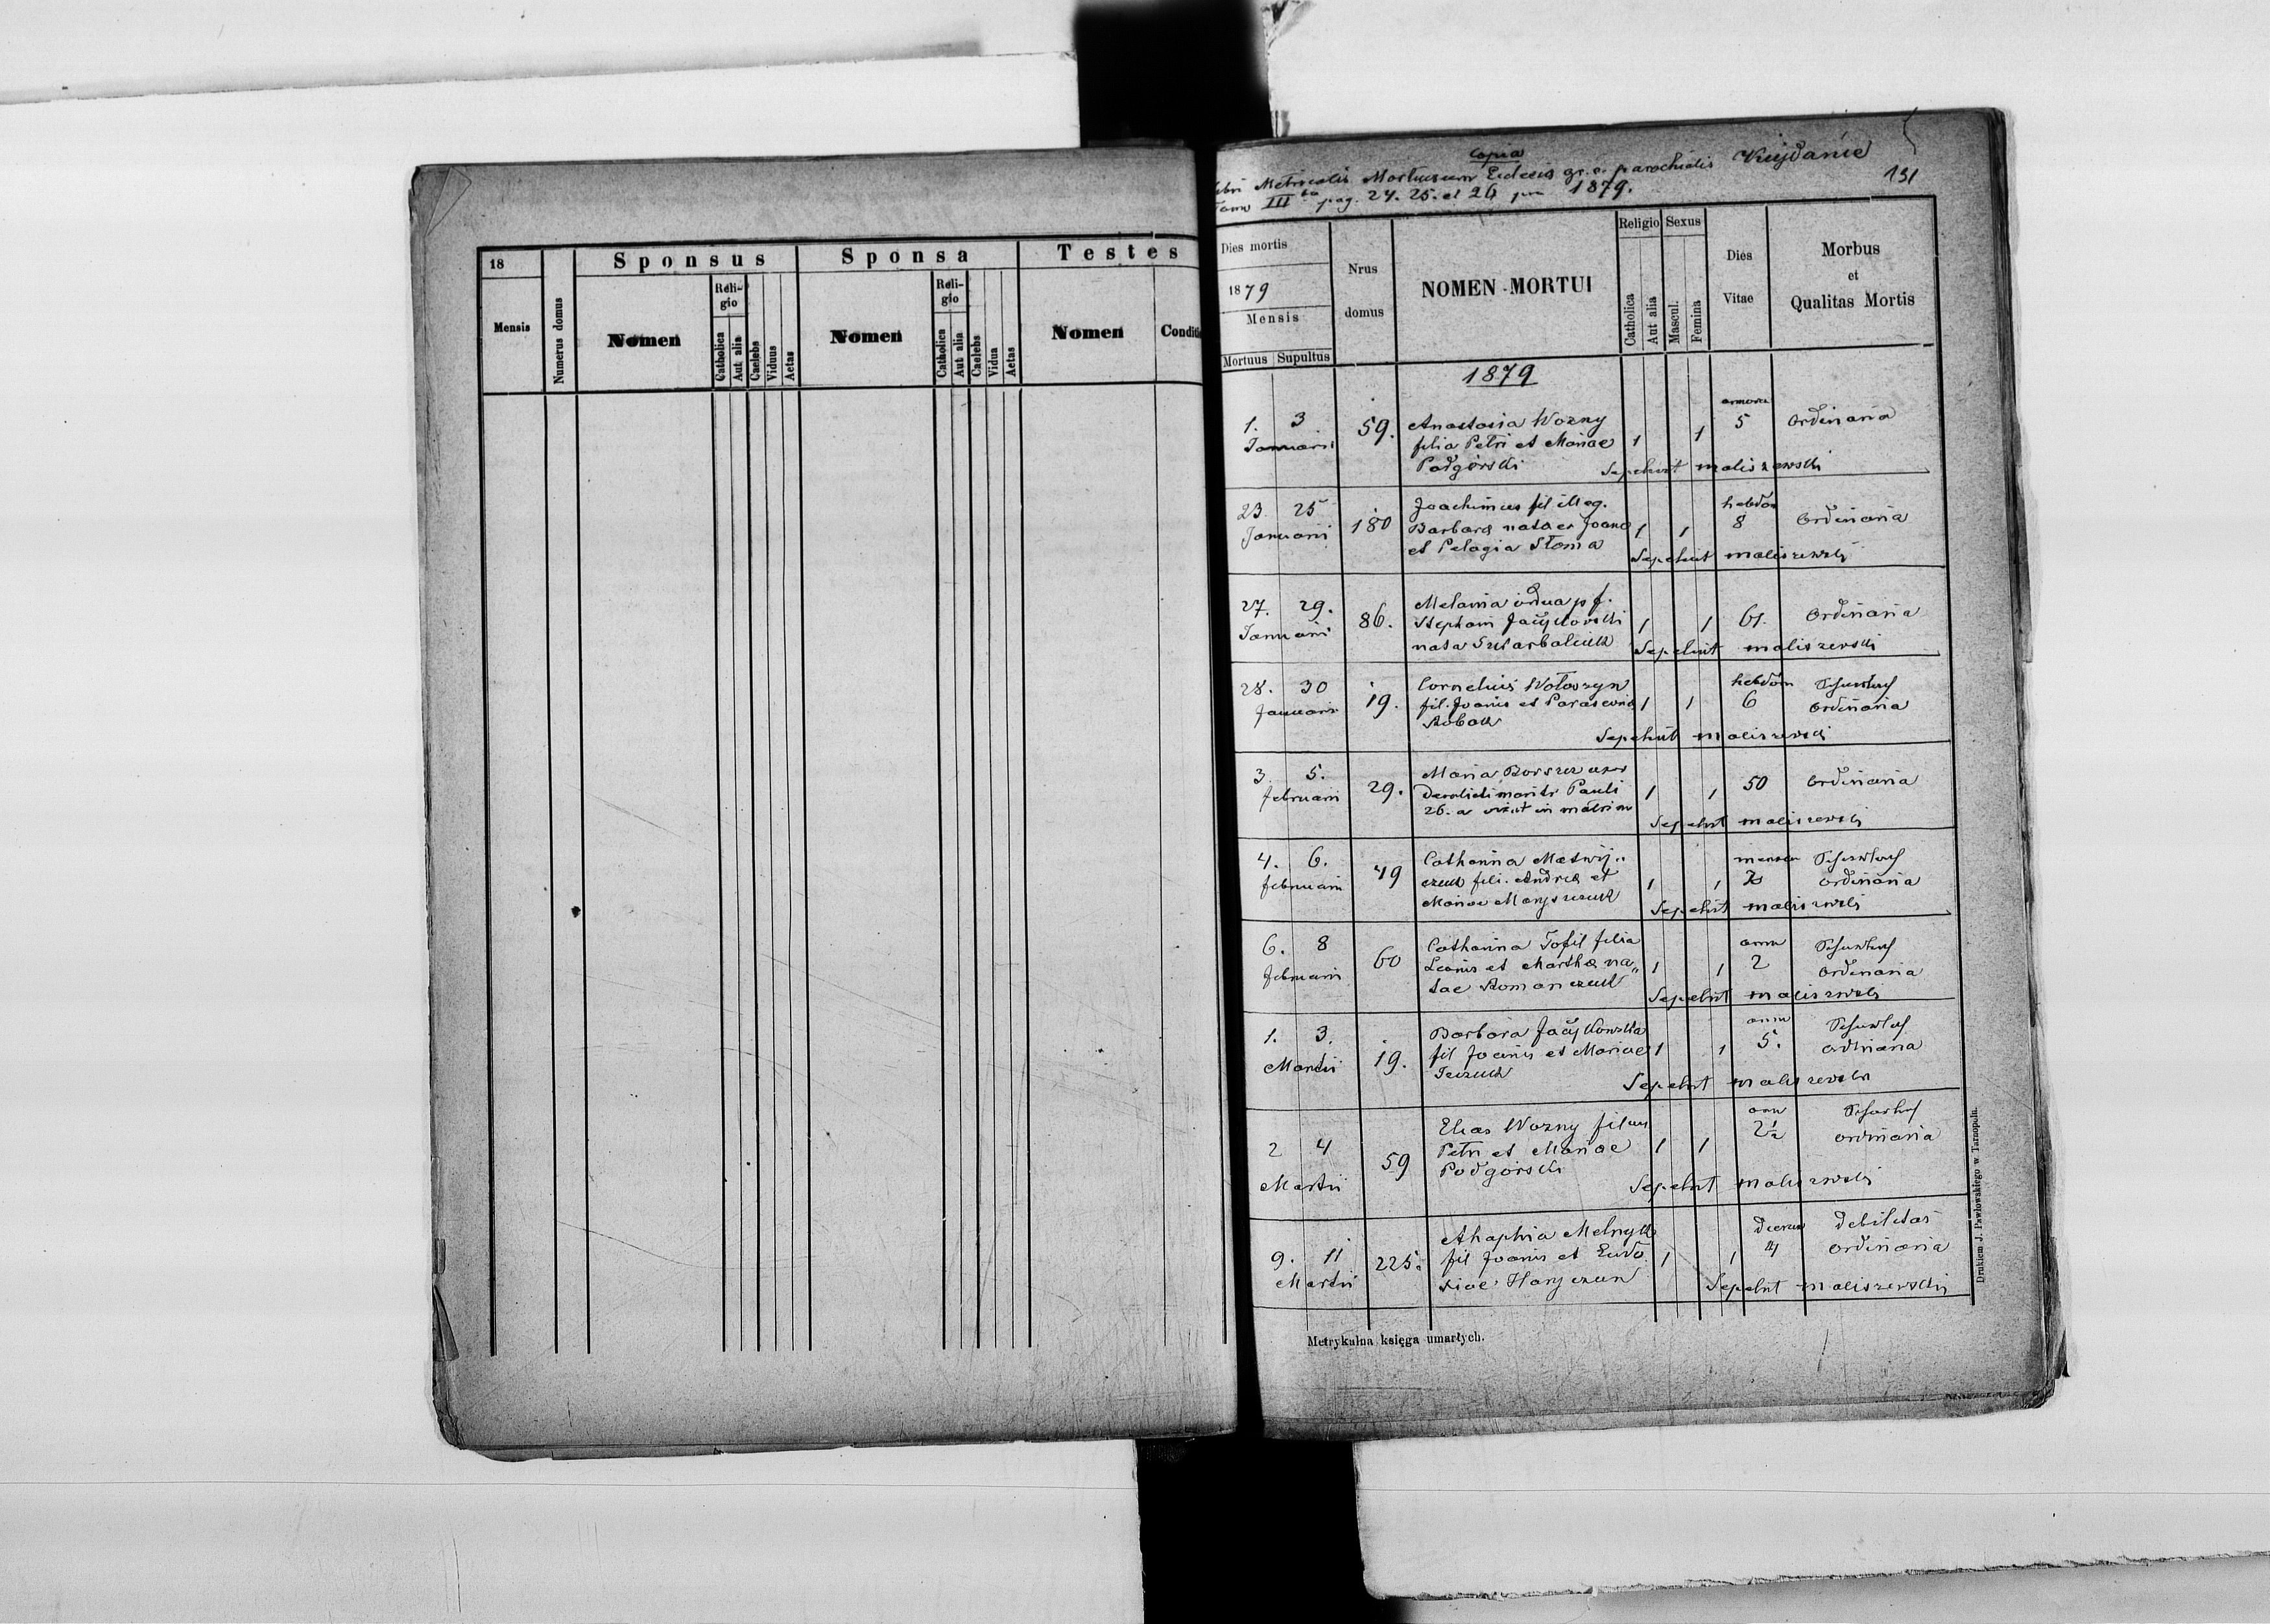 18
Mensis
Numerus domus
Sponsus
Nomen
Reli-
gio
Catholica
Aut alia
Caelebs
Viduus
Aetas
Sponsa
Nomen
Reli-
gio
Catholica
Aut alia
Caelebs
Vidua
Aetas
Testes
Nomen
Conditi
Copia
Libri Metricalis Mortuorum Eccleis gr. c. parochialis Kujdanie
Tomu III pag. 24. 25. et 26 pro 1879.
131
Dies mortis
1879
Mensis
Mortuus Supultus
Nrus
domus
NOMEN MORTUI
Religio
Catholica
Aut alia
Sexus
Mascul.
Femina
Dies
Vitae
Morbus
et
Qualitas Mortis
1879
1. 3 59. Anastasia Wozny 1 1 5 Ordinaria
Januarii filia Petri et Mariae
Podgórski Sepelivit Maliszewski
23 25 180 Joachimus fil illeg. hebdom
Januarii Barbara nata ex Joane 1 1 8 Ordinaria
et Pelagia Słoma Sepelivit Maliszewski
27. 29. 86. Melania
Januarii Stephani 1 1 61. Ordinaria
nata Sepelivit Maliszewski
28. 30 19. Cornelius Wołoszyn hebdom
Januarii fil. Joanis et Parascevia 1 1 6 Ordinaria
Sepelivit Maliszewski
3 5. 29. Maria Borszcz uxor
Februarii mariti Pauli 1 1 50 Ordinaria
26. a vixit in matrim
Sepelivit Maliszewski
4. 6. 49 Catharina Matwij-
Februarii czuk fili. Andreæ et 1 1 Ordinaria
Mariae
Sepelivit Maliszewski
6. 8 60 Catharina Tofil filia
Februarii Leonis et Martha na- 1 1 2 Ordinaria
tae Romanczuk
Sepelivit Maliszewski
1. 3. 19. Barbara
Martii fil Joanis et Mariae 1 1 5. Ordinaria
Sepelivit Maliszewski
2 4 59 Elias Wozny filius 2½
Martii Petri et Mariae 1 1 Ordinaria
Podgórski
Sepelivit Maliszewski
9. 11 225. Ahaphia Melnyk dierum Debilitas
Martii fil Joanis et Eudo 1 1 Ordinaria
xiae
Sepelivit Maliszewski
Metrykalna księga umarłych.
Drukiem J. Pawłowskiego w Tarnopolu.